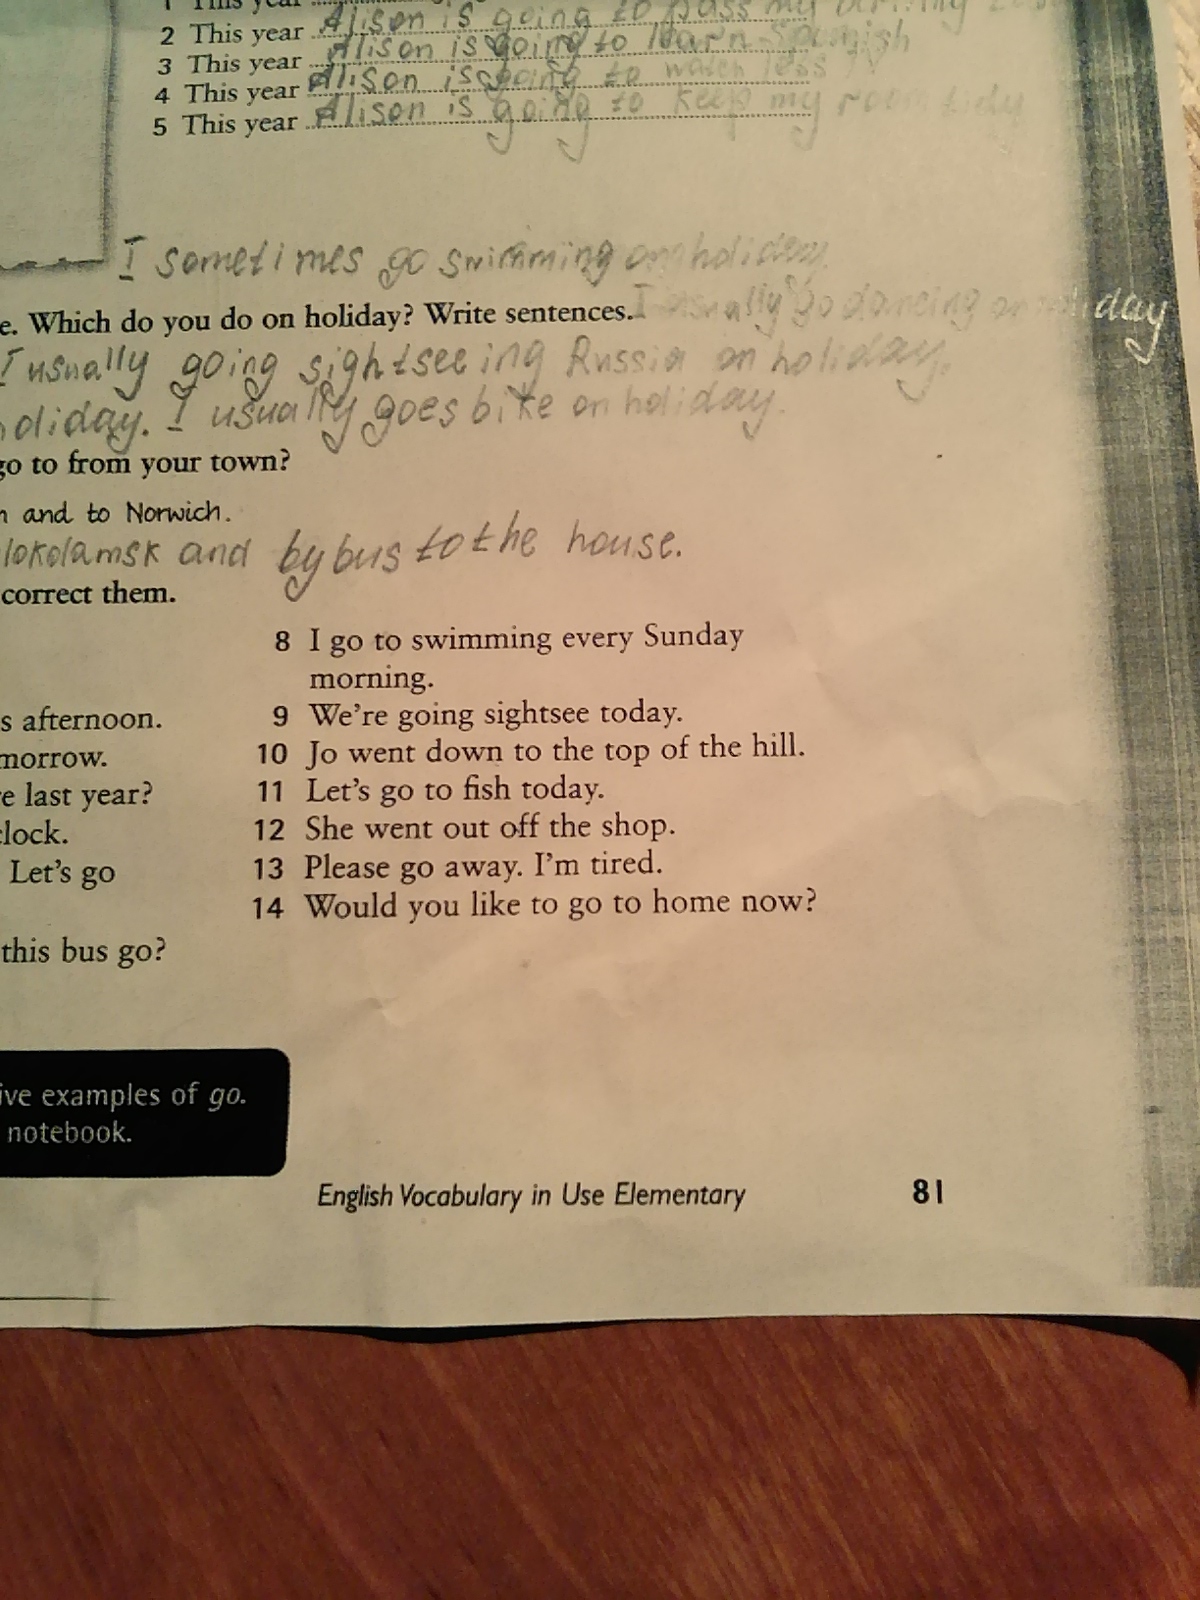 1 This year
2 This year Alison is going to pass my driving
3 This year Alison is going to learn Spanish
4 This year Alison is going to watch less TV
5 This year Alison is going to keep my room tidy
I sometimes go swimming on holiday.
e. Which do you do on holiday? Write sentences. I usually go dancing on holiday
I usually going sightseeing Russia on holiday.
oliday. I usually goes bike on holiday.
go to from your town?
n and to Norwich.
lokolamsk and by bus to the house.
correct them.
8 I go to swimming every Sunday
morning.
s afternoon. 9 We're going sightsee today.
morrow. 10 Jo went down to the top of the hill.
e last year? 11 Let's go to fish today.
clock. 12 She went out off the shop.
Let's go 13 Please go away. I'm tired.
14 Would you like to go to home now?
this bus go?
ive examples of go.
notebook.
English Vocabulary in Use Elementary 81